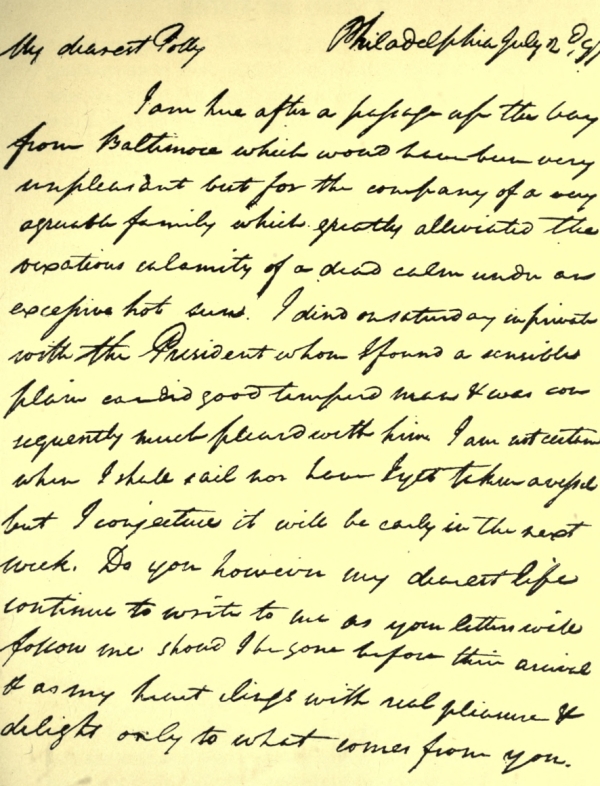 Philadelphia July 2d, 97
My dearest Polly
I am here after a passage up the bay
from Baltimore which would have been very
unpleasant but for the company of a very
agreeable family which greatly alleviated the
vexatious calamity of a dead calm under an
excessive hot sun. I dind on saturday in private
with the President whom I found a sensible
plain candid good temperd man & was con
sequently much pleasd with him. I am not certain
when I shall sail nor have I yet taken a vessel
but I conjecture it will be early in the next
week. Do you however my dearest life
continue to write to me as your letters will
follow me should I be gone before their arrival
& as my heart clings with real pleasure &
delight only to what comes from you.